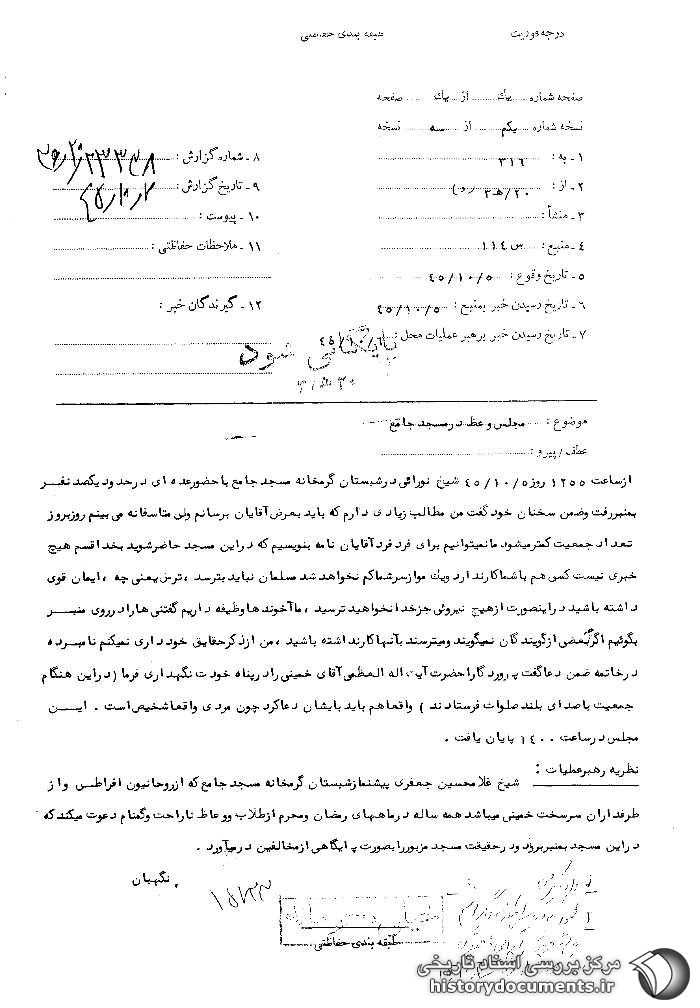 درجه فوریت
طبقه بندی حفاظتی
صفحه شماره یك از یك صفحه
نسخه شماره یکم از سه نسخه
۱ - به : ۳۱٦
۲ - از : ۲۰/ه۳
۳ - منشأ :
٤ - منبع : س ۱۱٤
٥ - تاریخ وقوع : ٤٥/۱۰/٥
٦ - تاریخ رسیدن خبر بمنبع : ٤٥/۱۰/٥
۷ - تاریخ رسیدن خبر برهبر عملیات محل :
۸ - شماره گزارش :
۹ - تاریخ گزارش :
۱۰ - پیوست :
۱۱ - ملاحظات حفاظتی :
۱۲ - گیرندگان خبر :
بایگانی شود
موضوع : مجلس وعظ در مسجد جامع
عطف / پیرو :
ازساعت ۱۲٥٥ روز ٤٥/۱۰/٥ شیخ نورائی در شبستان گرمخانه مسجد جامع با حضور عده ای در حدود یکصد نفر
بمنبر رفت وضمن سخنان خود گفت من مطالب زیادی دارم که باید بعرض آقایان برسانم ولی متاسفانه می بینم روزبروز
تعداد جمعیت کمتر میشود ما نمیتوانیم برای فرد فرد آقایان نامه بنویسیم که در این مسجد حاضر شوید بخدا قسم هیچ
خبری نیست کسی هم با شما کار ندارد ویك مو از سر شما کم نخواهد شد مسلمان نباید بترسد ، ترس یعنی چه ، ایمان قوی
داشته باشید در اینصورت از هیچ نیروئی جز خدا نخواهید ترسید ، ما آخوندها وظیفه داریم گفتنی ها را در روی منبر
بگوئیم اگر بعضی از گویندگان نمیگویند ومیترسند بآنها کار نداشته باشید ، من از ذکر حقایق خودداری نمیکنم نامبرده
در خاتمه ضمن دعا گفت پروردگارا حضرت آیت اله العظمی آقای خمینی را در پناه خودت نگهداری فرما ( در این هنگام
جمعیت با صدای بلند صلوات فرستادند ) واقعا هم باید بایشان دعا کرد چون مردی واقعا شخیص است . ایـــن
مجلس در ساعت ۱٤۰۰ پایان یافت .
نظریه رهبر عملیات : شیخ غلامحسین جعفری پیشنماز شبستان گرمخانه مسجد جامع که از روحانیون افراطی واز
طرفداران سرسخت خمینی میباشد همه ساله در ماههای رمضان ومحرم از طلاب ووعاظ ناراحت وگمنام دعوت میکند که
در این مسجد بمنبر بروند ودر حقیقت مسجد مزبور را بصورت پایگاهی از مخالفین درمیآورد .
نگهبان
طبقه بندی حفاظتی
مرکز بررسی اسناد تاریخی
historydocuments.ir